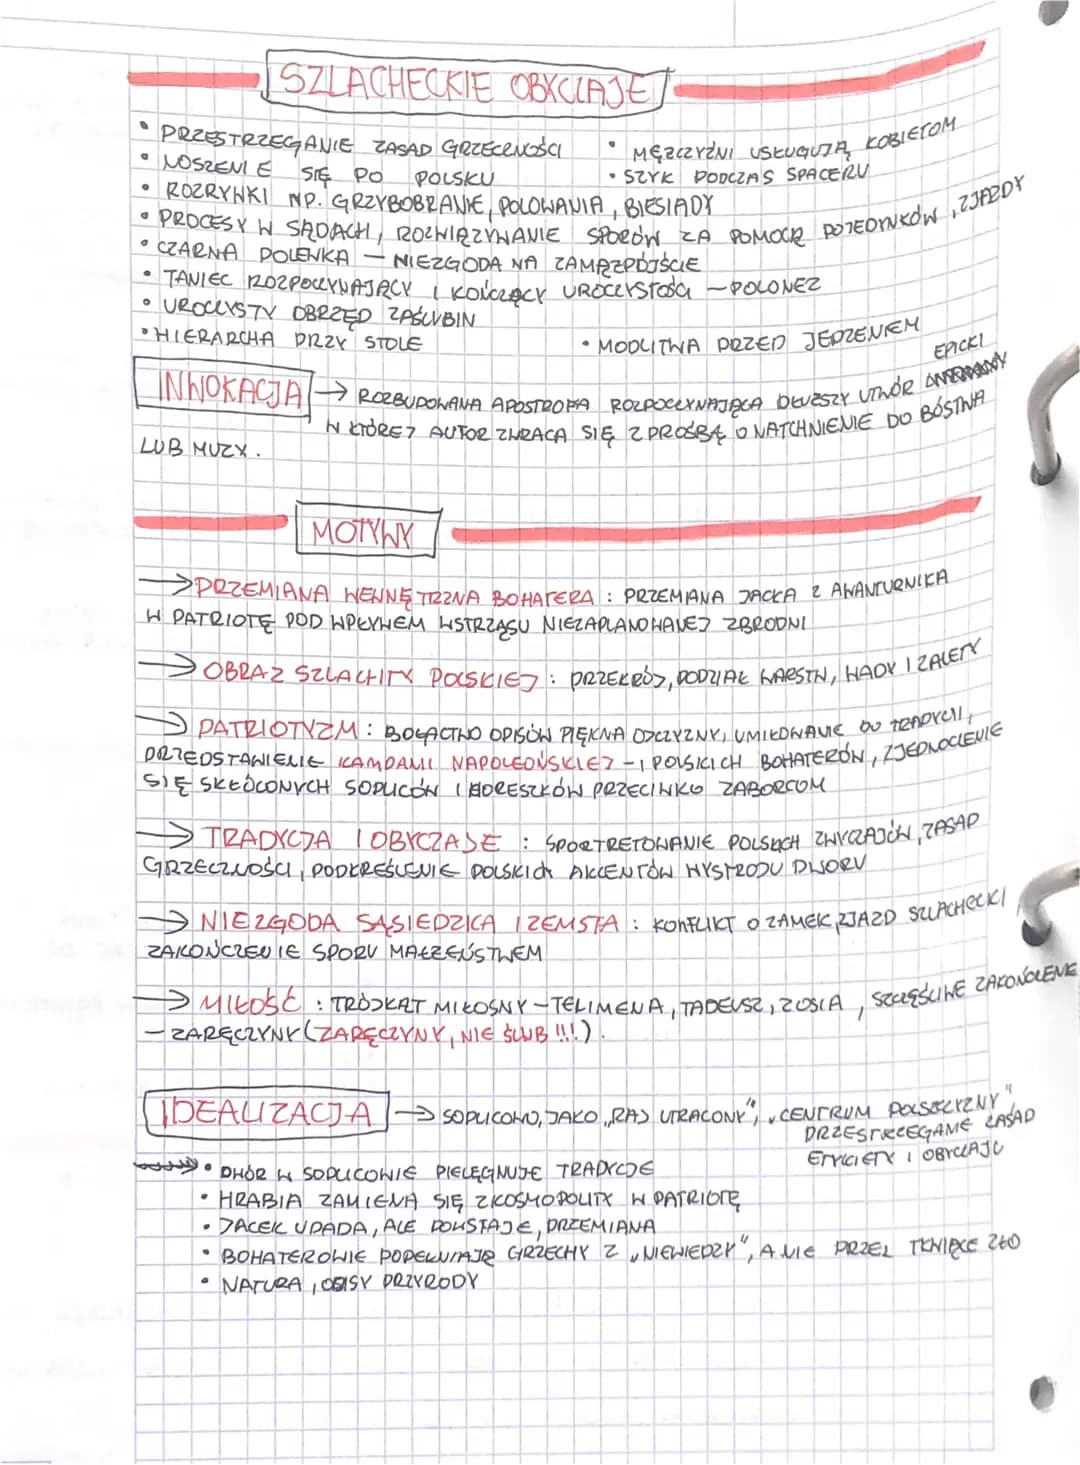 SZLACHECKIE OBYCZAJE
• PRZESTRZEGANIE ZASAD GRZECZNOŚCI
• MĘŻCZYŹNI USŁUGUJĄ KOBIETOM
• NOSZENIE SIĘ PO POLSKU
• SZYK PODCZAS SPACERU
• ROZRYWKI NP. GRZYBOBRANIE, POLOWANIA, BIESIADY
• PROCESY W SĄDACH, ROZWIĄZYWANIE SPORÓW ZA POMOCĄ POJEDYNKÓW, ZJAZDY
• CZARNA POLEWKA — NIEZGODA NA ZAMĄŻPÓJŚCIE
• TANIEC ROZPOCZYNAJĄCY I KOŃCZĄCY UROCZYSTOŚCI — POLONEZ
• UROCZYSTY OBRZĘD ZAŚLUBIN
• HIERARCHA PRZY STOLE
• MODLITWA PRZED JEDZENIEM
INWOKACJA → ROZBUDOWANA APOSTROFA ROZPOCZYNAJĄCA DŁUŻSZY UTWÓR EPICKI
W KTÓREJ AUTOR ZWRACA SIĘ Z PROŚBĄ O NATCHNIENIE DO BÓSTWA
LUB MUZY.
MOTYWY
→ PRZEMIANA WEWNĘTRZNA BOHATERA : PRZEMIANA JACKA Z AWANTURNIKA
W PATRIOTĘ POD WPŁYWEM WSTRZĄSU NIEZAPLANOWANEJ ZBRODNI
→ OBRAZ SZLACHTY POLSKIEJ : PRZEKRÓJ, PODZIAŁ WARSTW, WADY I ZALETY
→ PATRIOTYZM : BOGACTWO OPISÓW PIĘKNA OJCZYZNY, UMIŁOWANIE DO TRADYCJI,
PRZEDSTAWIENIE KAMPANII NAPOLEOŃSKIEJ – I POLSKICH BOHATERÓW, ZJEDNOCZENIE
SIĘ SKŁÓCONYCH SOPLICÓW I HORESZKÓW PRZECIWKO ZABORCOM
→ TRADYCJA I OBYCZAJE : SPORTRETOWANIE POLSKICH ZWYCZAJÓW, ZASAD
GRZECZNOŚCI, PODKREŚLENIE POLSKICH AKCENTÓW WYSTROJU DWORU
→ NIEZGODA SĄSIEDZKA I ZEMSTA : KONFLIKT O ZAMEK, ZJAZD SZLACHECKI
ZAKOŃCZENIE SPORU MAŁŻEŃSTWEM
→ MIŁOŚĆ : TRÓJKĄT MIŁOSNY – TELIMENA, TADEUSZ, ZOSIA, SZCZĘŚLIWE ZAKOŃCZENIE
— ZARĘCZYNY (ZARĘCZYNY, NIE ŚLUB !!!).
IDEALIZACJA → SOPLICOWO, JAKO „RAJ UTRACONY", „CENTRUM POLSZCZYZNY",
PRZESTRZEGANE ZASAD
ETYKIETY I OBYCZAJU
• DWÓR W SOPLICOWIE PIELĘGNUJE TRADYCJE
• HRABIA ZAMIENA SIĘ Z KOSMOPOLITY W PATRIOTĘ
• JACEK UPADA, ALE POWSTAJE, PRZEMIANA
• BOHATEROWIE POPEŁNIAJĄ GRZECHY Z „NIEWIEDZY", A NIE PRZEZ TKWIĄCE ZŁO
• NATURA, OPISY PRZYRODY